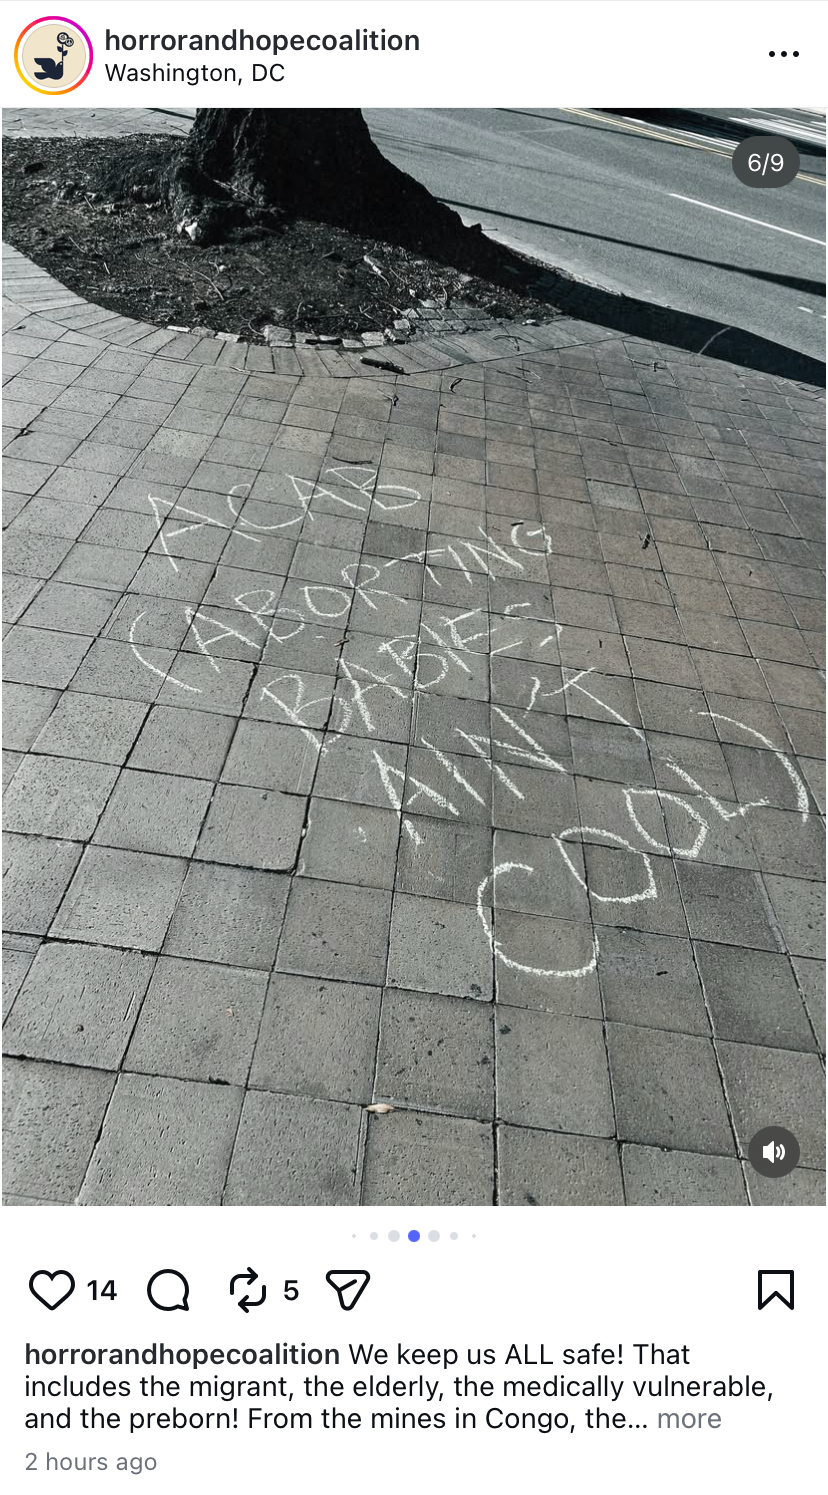 horrorandhopecoalition
Washington, DC
6/9
ACAB
(ABORTING
BABIES
AIN'T
COOL)
14
5
horrorandhopecoalition We keep us ALL safe! That
includes the migrant, the elderly, the medically vulnerable,
and the preborn! From the mines in Congo, the... more
2 hours ago